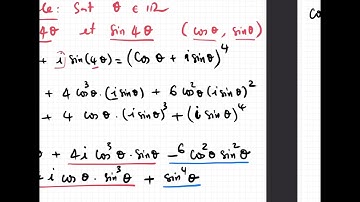 le: Soit θ ∈ ℝ
4θ et sin 4θ (cosθ, sinθ)
+ i sin(4θ) = (Cosθ + i sinθ)^4
+ 4 cos^3θ·(i sinθ) + 6cos^2θ(i sinθ)^2
+ 4 cosθ·(i sinθ)^3 + (i sinθ)^4
+ 4i cos^3θ·sinθ - 6cos^2θ sin^2θ
i cosθ·sin^3θ + sin^4θ
co